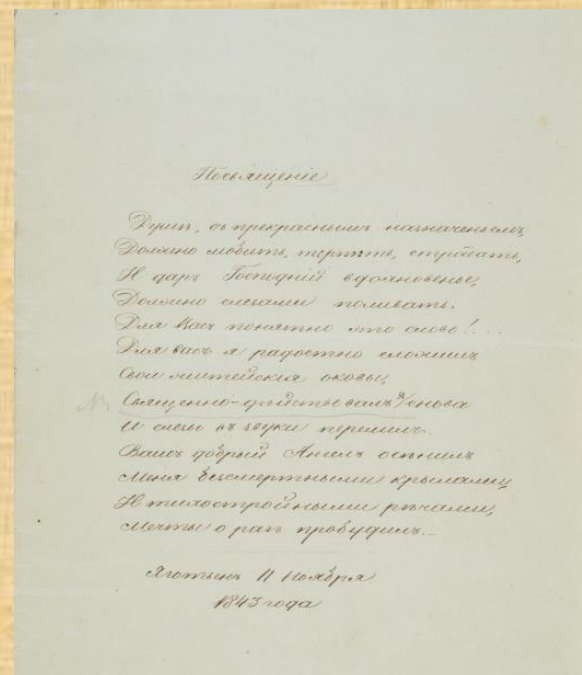 Посвященіе
Души, съ прекраснымъ назначеньемъ,
Должно любить, терпѣть, страдать,
И даръ Господній вдохновенье,
Должно слезами поливать.
Для Васъ понятно это слово!...
Для васъ я радостно сложилъ
Свои житейскія оковы,
Священно-дѣйствовалъ я снова
И слезы въ звуки перелилъ.
Вашъ добрый Ангелъ осѣнилъ
Меня безсмертными крылами,
И тихостройными рѣчами,
Мечты о раѣ пробудилъ.
Яготынъ 11 Ноября
1843 года